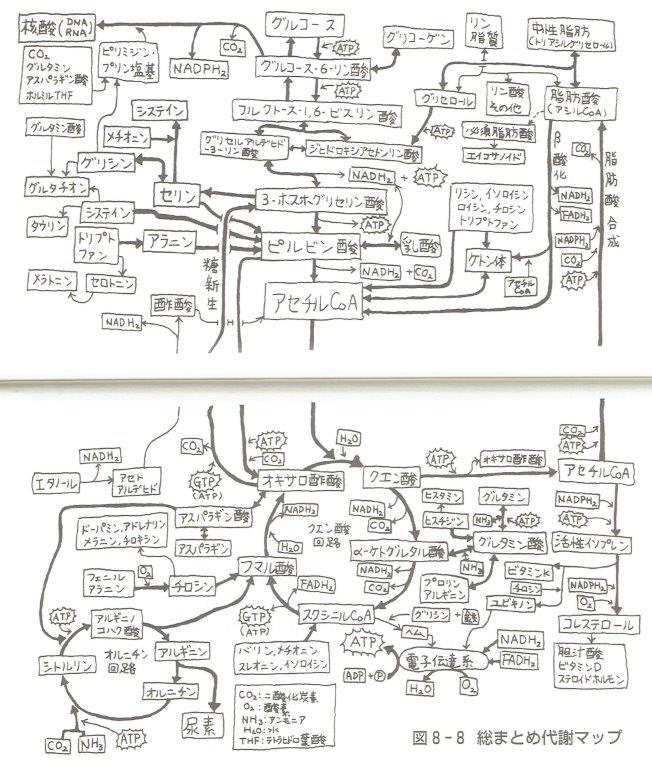 核酸(DNA RNA)
CO₂
グルタミン
アスパラギン酸
ホルミルTHF
ピリミジン・
プリン塩基
NADPH₂
CO₂
グルコース
ATP
グルコース-6-リン酸
グリコーゲン
ATP
フルクトース-1,6-ビスリン酸
グリセルアルデヒド
-3-リン酸
ジヒドロキシアセトンリン酸
リン
脂質
中性脂肪
(トリアシルグリセロール)
グリセロール
リン酸
その他
脂肪酸
(アシルCoA)
ATP
必須脂肪酸
エイコサノイド
β酸化
脂肪酸合成
CO₂
NADH₂
FADH₂
NADPH₂
CO₂
ATP
グルタミン酸
システイン
メチオニン
グリシン
グルタチオン
セリン
タウリン
システイン
トリプト
ファン
アラニン
メラトニン
セロトニン
NADH₂
酢酸
糖新生
NADH₂ + ATP
3-ホスホグリセリン酸
ATP
ピルビン酸
乳酸
NADH₂ + CO₂
アセチルCoA
リシン,イソロイシン
ロイシン,チロシン
トリプトファン
ケトン体
アセチル
CoA
エタノール
NADH₂
アセト
アルデヒド
CO₂
GTP
(ATP)
ATP
CO₂
H₂O
オキサロ酢酸
クエン酸
ATP
オキサロ酢酸
CO₂
ATP
アセチルCoA
NADPH₂
ATP
活性イソプレン
NADPH₂
O₂
コレステロール
胆汁酸
ビタミンD
ステロイドホルモン
アスパラギン酸
アスパラギン
NADH₂
H₂O
クエン酸
回路
NADH₂
CO₂
α-ケトグルタル酸
NADH₂
CO₂
ヒスタミン
ヒスチジン
グルタミン
NH₃
ATP
グルタミン酸
NH₃
プロリン
アルギニン
ビタミンK
チロシン
ユビキノン
ドーパミン,アドレナリン
メラニン,チロキシン
O₂
フェニル
アラニン
チロシン
フマル酸
FADH₂
GTP
(ATP)
スクシニルCoA
グリシン + 鉄
ヘム
バリン,メチオニン
スレオニン,イソロイシン
ATP
アルギニノ
コハク酸
オルニチン
回路
アルギニン
シトルリン
オルニチン
尿素
CO₂
NH₃
ATP
ATP
ADP + P
電子伝達系
NADH₂
FADH₂
H₂O
O₂
CO₂:二酸化炭素
O₂:酸素
NH₃:アンモニア
H₂O:水
THF:テトラヒドロ葉酸
図8-8 総まとめ代謝マップ